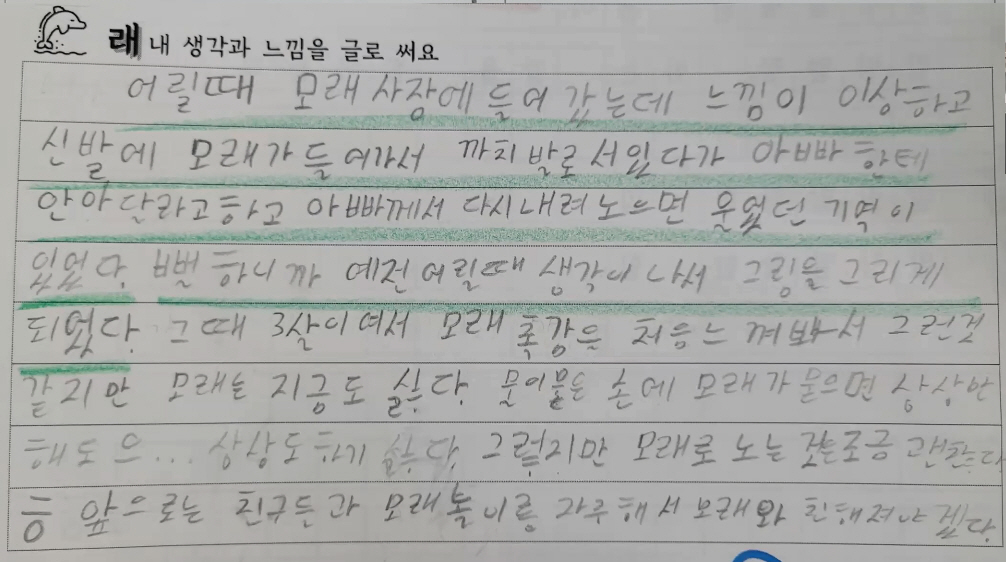 래 내 생각과 느낌을 글로 써요
어릴때 모래사장에 들어 갔는데 느낌이 이상하고
신발에 모래가 들어가서 까치발로 서있다가 아빠한테
안아달라고하고 아빠께서 다시내려노으면 울었던 기억이
있었다. 뻘 하니까 예전 어릴때 생각이 나서 그림을 그리게
되었다. 그때 3살이여서 모래 촉감은 처음느껴봐서 그런것
같지만 모래는 지금도 싫다. 물이묻은 손에 모래가 묻으면 상상안
해도 으... 상상도하기 싫다. 그렇지만 모래로 노는 것은조금 괜찮다
응 앞으로는 친구들과 모래놀이를 자주해서 모래와 친해져야겠다.